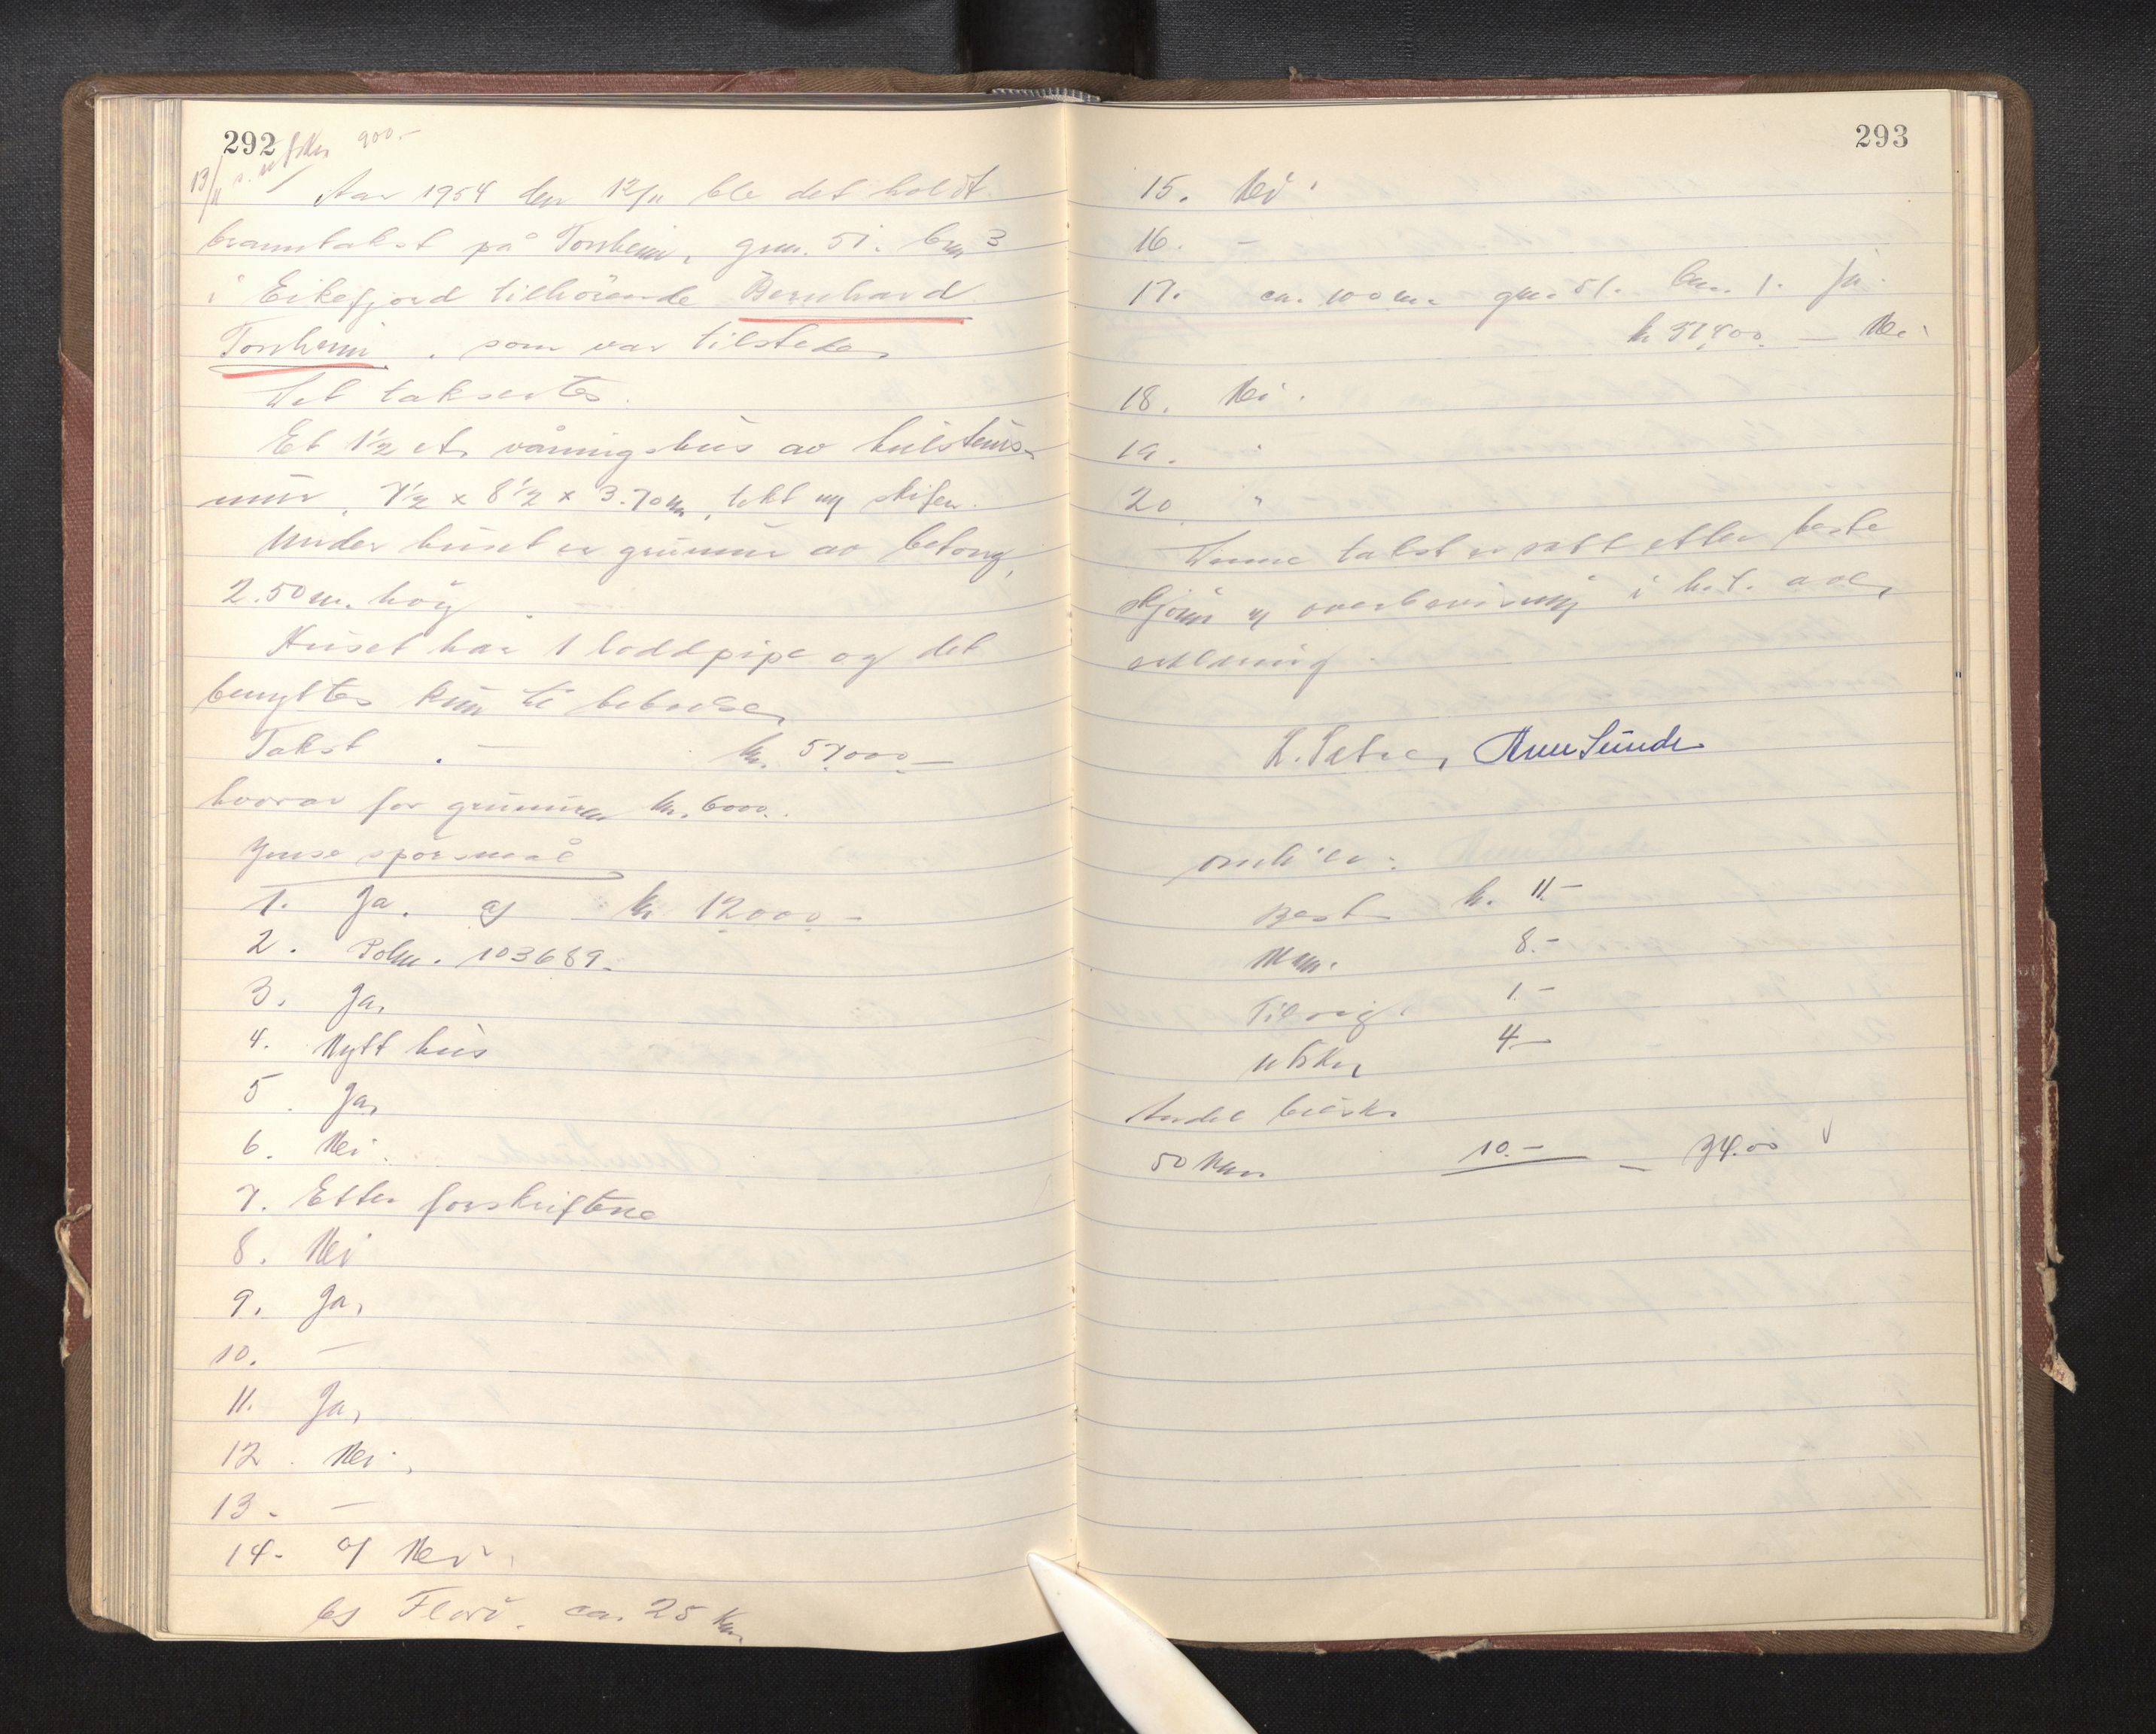 292
13/11 s. utskr. 900.-
Aar 1954 den 12/11 ble det holdt
branntakst på Torsheim, gnr. 51. bnr 3
i Eikefjord tilhörende Bernhard
Torsheim, som var tilstede.
Det taksertes.
Et 1½ et. våningshus av hulstens-
mur, 7½ x 8½ x 3.70 m, tekt m/ skifer.
Under huset er grunnmur av betong,
2.50 m. höy
Huset har 1 loddpipe og det
benyttes kun til beboelse,
Takst . — kr. 57.000.—
hvorav for grunnmuren kr. 6000.
Jense spörsmål
1. Ja. a/ kr 12.000 -
2. Polnr. 103689.
3. Ja,
4. Nytt hus
5. Ja,
6. Nei.
7. Etter forskriftene
8. Nei
9. Ja,
10. —
11. Ja,
12. Nei.
13. —
14. a/ Nei.
b/ Florö. ca. 25 km
293
15. Nei.
16. —
17. ca. 100 m. gnr 51. bnr. 1. Ja.
kr 37.400. — Nei
18. Nei.
19. "
20 "
Denne takst er satt etter beste
skjönn og overbevisning i h.t. avl.
erklæring.
Arne Sunde
Best kr. 11.-
8.-
1.-
utskr 4.-
Andel bilsk.
50 km 10.- — 34.00